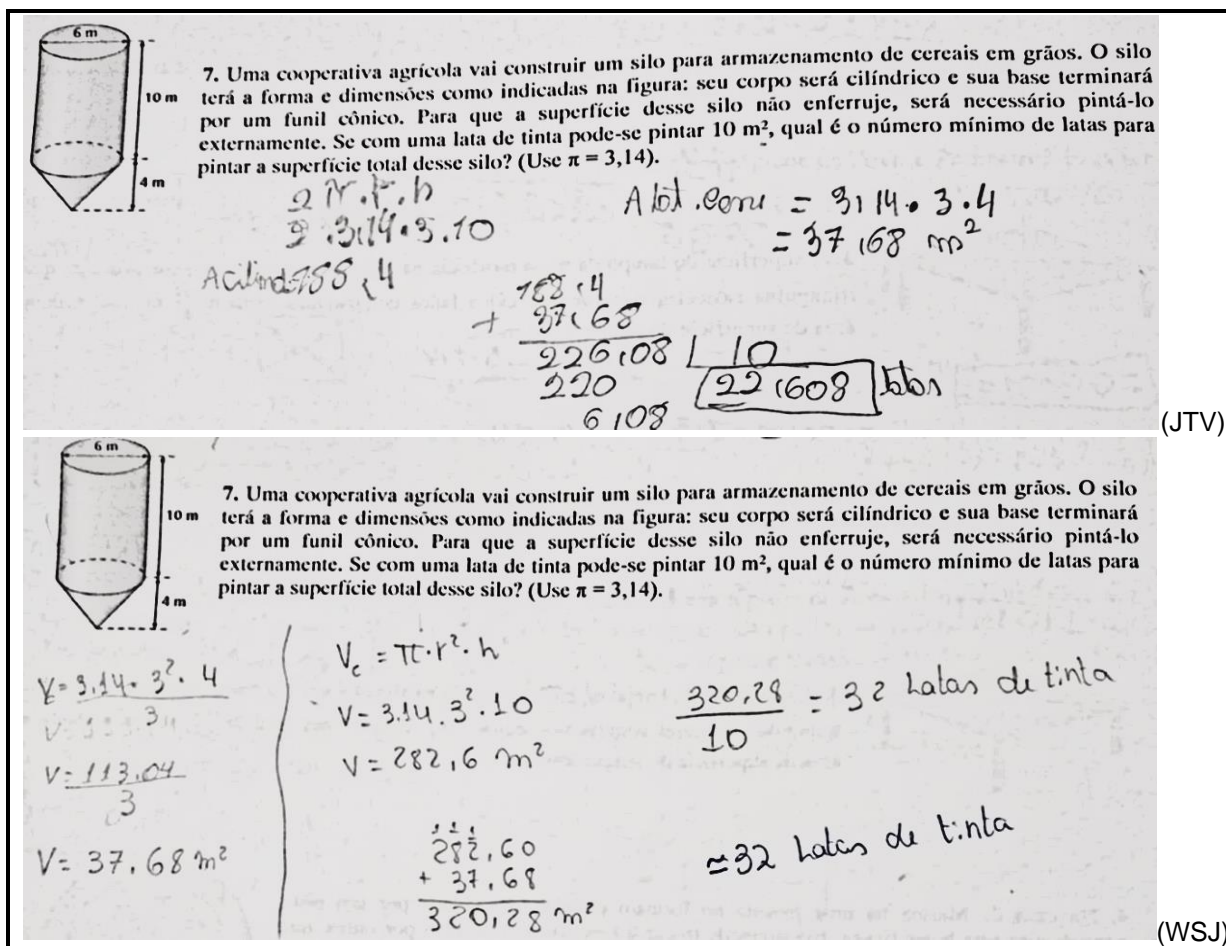 6 m
10 m
4 m
7. Uma cooperativa agrícola vai construir um silo para armazenamento de cereais em grãos. O silo
terá a forma e dimensões como indicadas na figura: seu corpo será cilíndrico e sua base terminará
por um funil cônico. Para que a superfície desse silo não enferruje, será necessário pintá-lo
externamente. Se com uma lata de tinta pode-se pintar 10 m², qual é o número mínimo de latas para
pintar a superfície total desse silo? (Use π = 3,14).
2 π.r.h
.3,14.3.10
188,4
A = 3,14.3.4
= 37,68 m²
188,4
+ 37,68
226,08 10
220 22,608
6,08
(JTV)
6 m
10 m
4 m
7. Uma cooperativa agrícola vai construir um silo para armazenamento de cereais em grãos. O silo
terá a forma e dimensões como indicadas na figura: seu corpo será cilíndrico e sua base terminará
por um funil cônico. Para que a superfície desse silo não enferruje, será necessário pintá-lo
externamente. Se com uma lata de tinta pode-se pintar 10 m², qual é o número mínimo de latas para
pintar a superfície total desse silo? (Use π = 3,14).
V = 3.14. 3². 4
3
V = 113.04
3
V = 37.68 m²
Vc = π.r².h
V = 3.14.3².10
V = 282,6 m²
282,60
+ 37,68
320,28 m²
320,28 = 32 Latas de tinta
10
≃32 Latas de tinta
(WSJ)